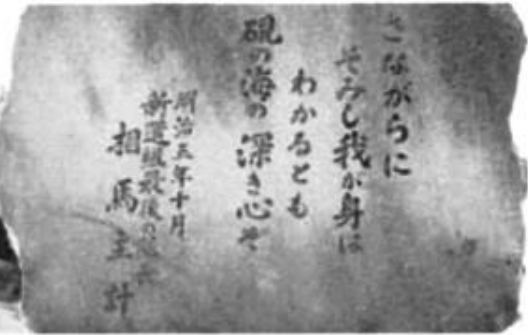 さながらに
そみし我が身は
わかるとも
硯の海の深き心ぞ
明治五年十月
新選組最後の
相馬主計